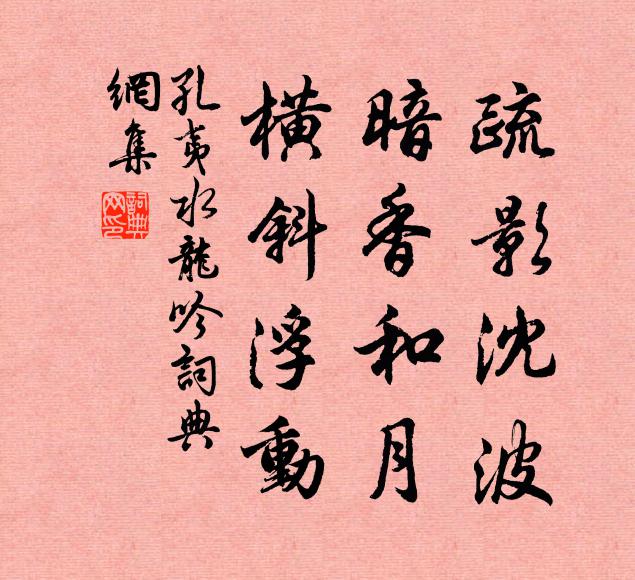 疏影沈波
暗香和月
橫斜浮動
孔夷水龍吟詞典
網集
詞典
网印